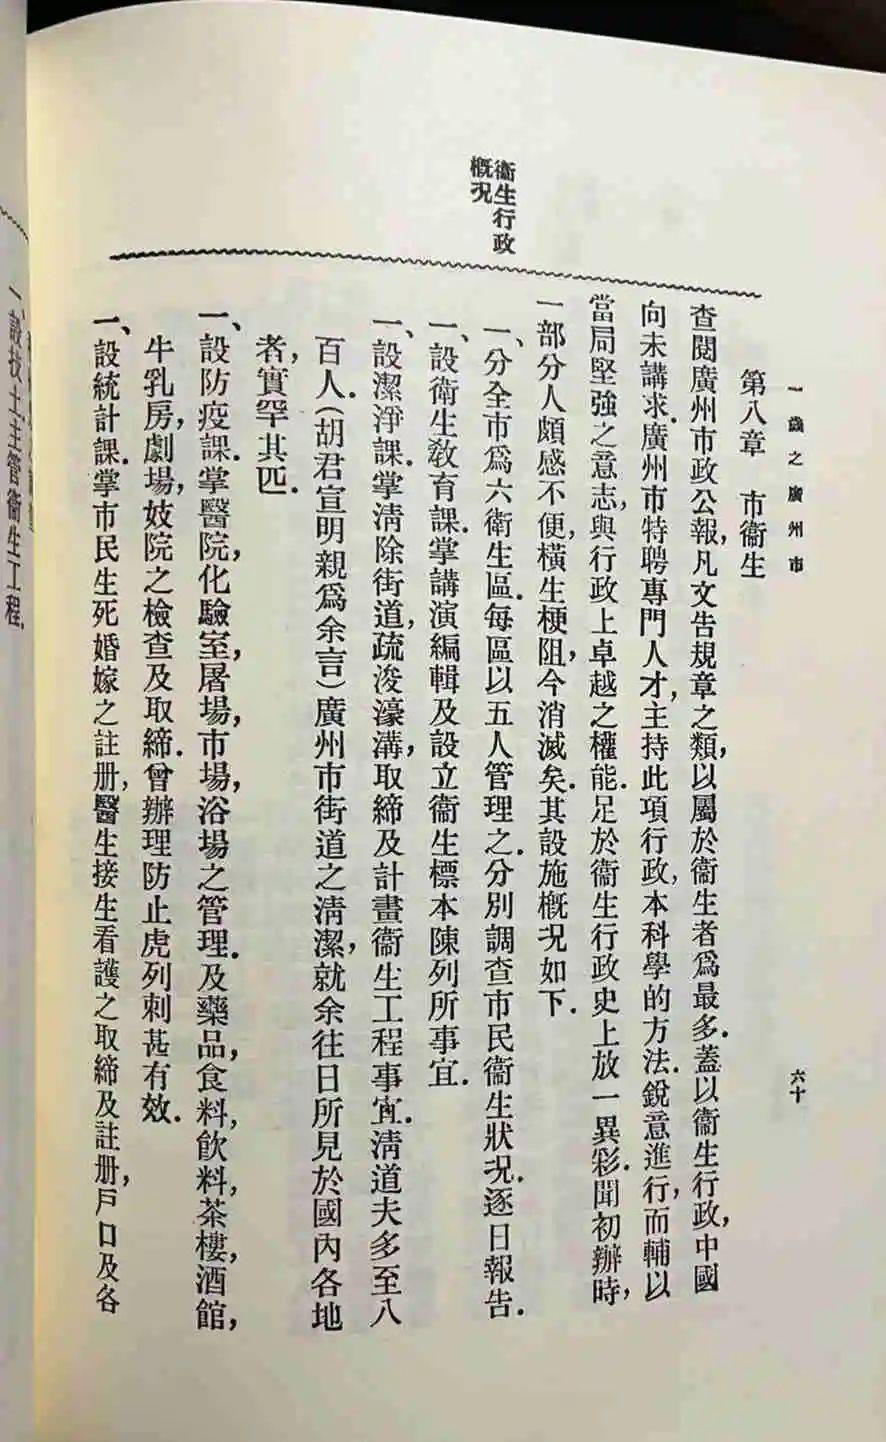 一歲之廣州市
六十
第八章　市衞生
衞生行政
槪况
查閱廣州市政公報,凡文告規章之類,以屬於衞生者爲最多.蓋以衞生行政,中國
向未講求.廣州市特聘專門人才,主持此項行政,本科學的方法.銳意進行,而輔以
當局堅強之意志,與行政上卓越之權能.足於衞生行政史上放一異彩.聞初辦時,
一部分人頗感不便,橫生梗阻,今消滅矣.其設施槪况如下.
一、分全市爲六衞生區.每區以五人管理之.分別調查市民衞生狀况.逐日報告.
一、設衞生敎育課.掌講演編輯及設立衞生標本陳列所事宜.
一、設潔淨課.掌淸除街道,疏浚濠溝,取締及計畫衞生工程事宜.淸道夫多至八
百人.(胡君宣明親爲余言)廣州市街道之淸潔,就余往日所見於國內各地
者,實罕其匹.
一、設防疫課.掌醫院,化驗室,屠場,市場,浴場之管理.及藥品,食料,飮料,茶樓,酒館,
牛乳房,劇場,妓院之檢查及取締.曾辦理防止虎列刺甚有效.
一、設統計課.掌市民生死婚嫁之註册,醫生接生看護之取締及註册,戶口及各
一、設技士主管衞生工程.